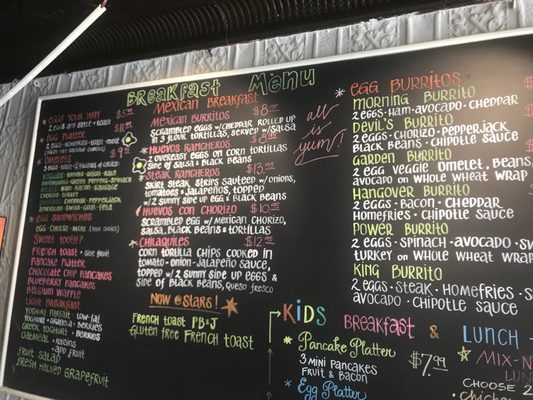 Breakfast Menu
EGGS YOUR WAY
EGG PLATTER
OMELETS
EGG SANDWICHES
SWEET TOOTH?
FRENCH TOAST
PANCAKE PLATTER
CHOCOLATE CHIP PANCAKES
BLUEBERRY PANCAKES
BELGIUM WAFFLE
LIGHT BREAKFAST
YOGHURT PARFAIT - LOW-FAT
YOGHURT • GRANOLA • BERRIES
GREEK YOGHURT - BERRIES
OATMEAL
FRUIT SALAD
FRESH HALVED GRAPEFRUIT
MEXICAN BREAKFAST
MEXICAN BURRITOS
SCRAMBLED EGGS W/CHEDDAR ROLLED UP
IN 3 FLOUR TORTILLAS, SERVED W/SALSA
HUEVOS RANCHEROS
2 OVEREASY EGGS ON CORN TORTILLAS
SIDE OF SALSA & BLACK BEANS
STEAK RANCHEROS
SKIRT STEAK STRIPS SAUTEED W/ONIONS,
TOMATOES & JALAPEÑOS, TOPPED
W/2 SUNNY SIDE UP EGG & BLACK BEANS
HUEVOS CON CHORIZO
SCRAMBLED EGG W/MEXICAN CHORIZO,
SALSA, BLACK BEANS & TORTILLAS
CHILAQUILES
CORN TORTILLA CHIPS COOKED IN
TOMATO-ONION-JALAPEÑO SAUCE,
TOPPED W/2 SUNNY SIDE UP EGGS &
SIDE OF BLACK BEANS, QUESO FRESCO
NOW @ STARS!
FRENCH TOAST PB&J
GLUTEN FREE FRENCH TOAST
all is yum!
EGG BURRITOS
MORNING BURRITO
2 EGGS • HAM • AVOCADO • CHEDDAR
DEVIL'S BURRITO
2 EGGS • CHORIZO • PEPPERJACK
BLACK BEANS • CHIPOTLE SAUCE
GARDEN BURRITO
2 EGG VEGGIE OMELET, BEANS
AVOCADO ON WHOLE WHEAT WRAP
HANGOVER BURRITO
2 EGGS • BACON • CHEDDAR
HOMEFRIES • CHIPOTLE SAUCE
POWER BURRITO
2 EGGS • SPINACH • AVOCADO
TURKEY ON WHOLE WHEAT WRAP
KING BURRITO
2 EGGS • STEAK • HOMEFRIES
AVOCADO • CHIPOTLE SAUCE
KIDS BREAKFAST & LUNCH
Pancake Platter $7.99
3 MINI PANCAKES
FRUIT & BACON
Egg Platter
CHOOSE 2